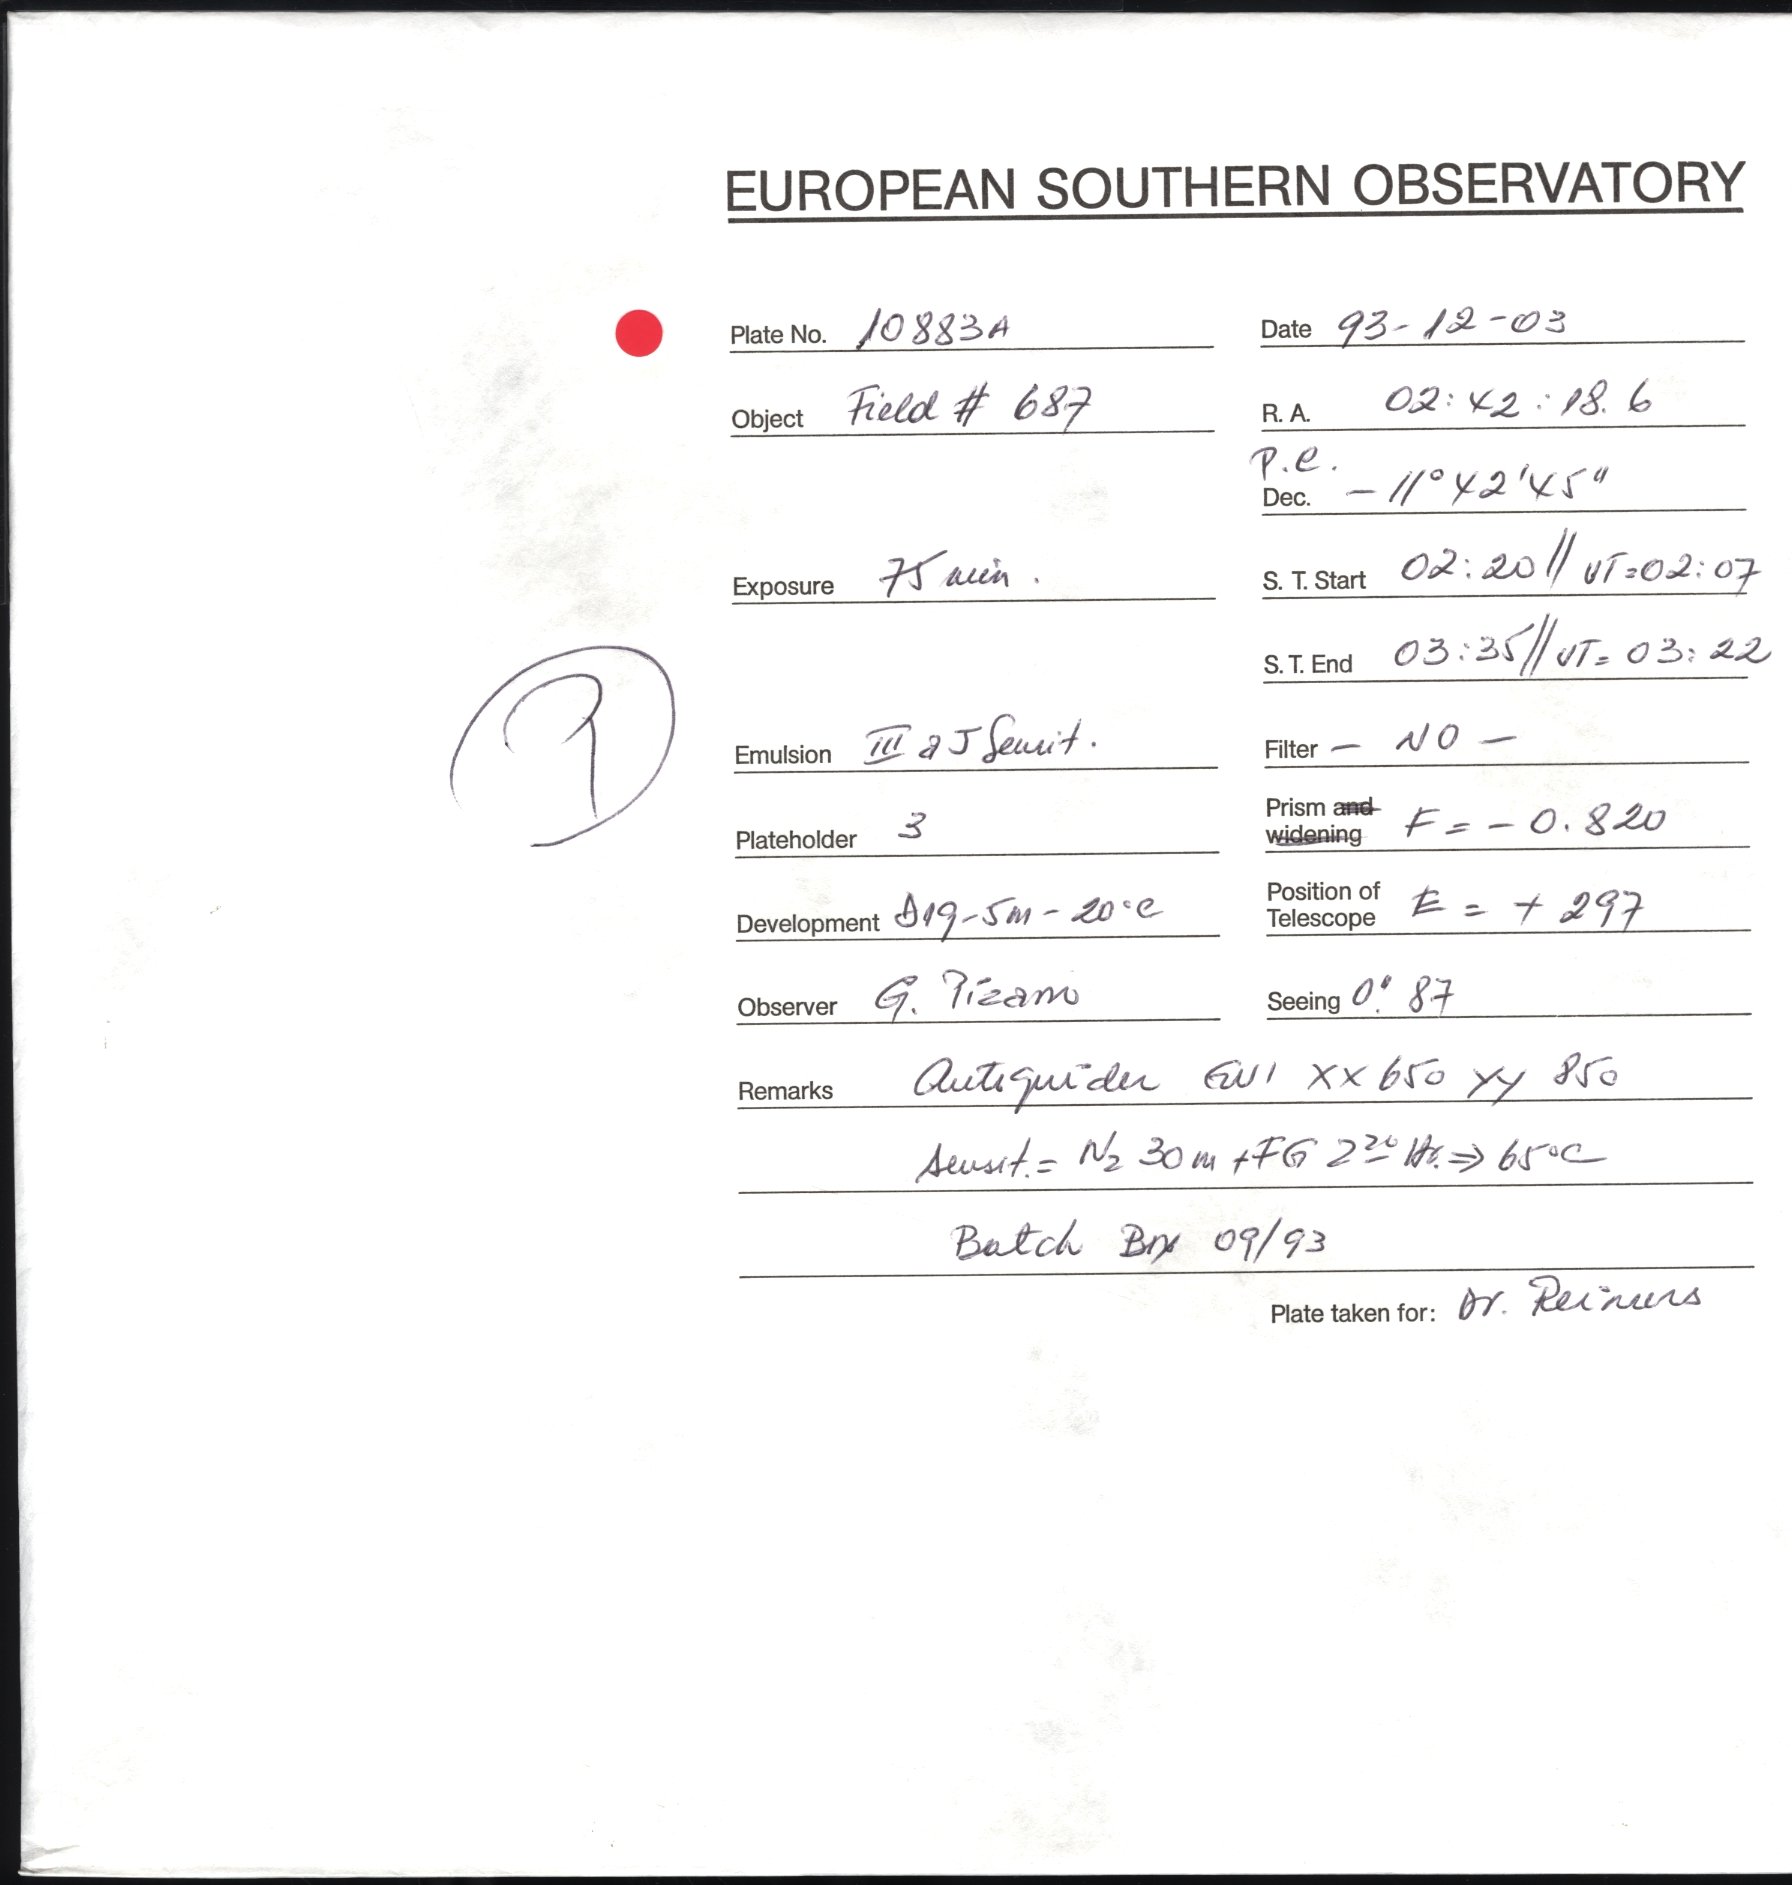 EUROPEAN SOUTHERN OBSERVATORY
Plate No. 10883A Date 93-12-03
Object Field # 687 R. A. 02:42:18.6
P.C.
Dec. -11°42'45"
Exposure 75 min. S. T. Start 02:20 // UT=02:07
S. T. End 03:35 // UT=03:22
Emulsion III a J Sensit. Filter - NO -
Plateholder 3 Prism and widening F = -0.820
Development D19-5m-20°C Position of Telescope E = +297
Observer G. Pizarro Seeing 0".87
Remarks Autoguider XX 650 YY 850
Sensit. = N2 30m + FG 2 20 Hr. ⇒ 65°C
Batch 09/93
Plate taken for: Dr. Reimers